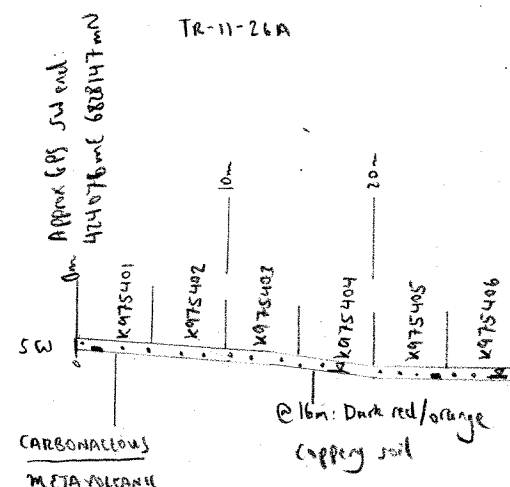 TR-11-26A
Approx GPS SW end:
424076mE 6828147mN
0m
10m
20m
K975401
K975402
K975403
K975404
K975405
K975406
SW
@16m: Dark red/orange
coppery soil
CARBONACEOUS
METAVOLCANIC